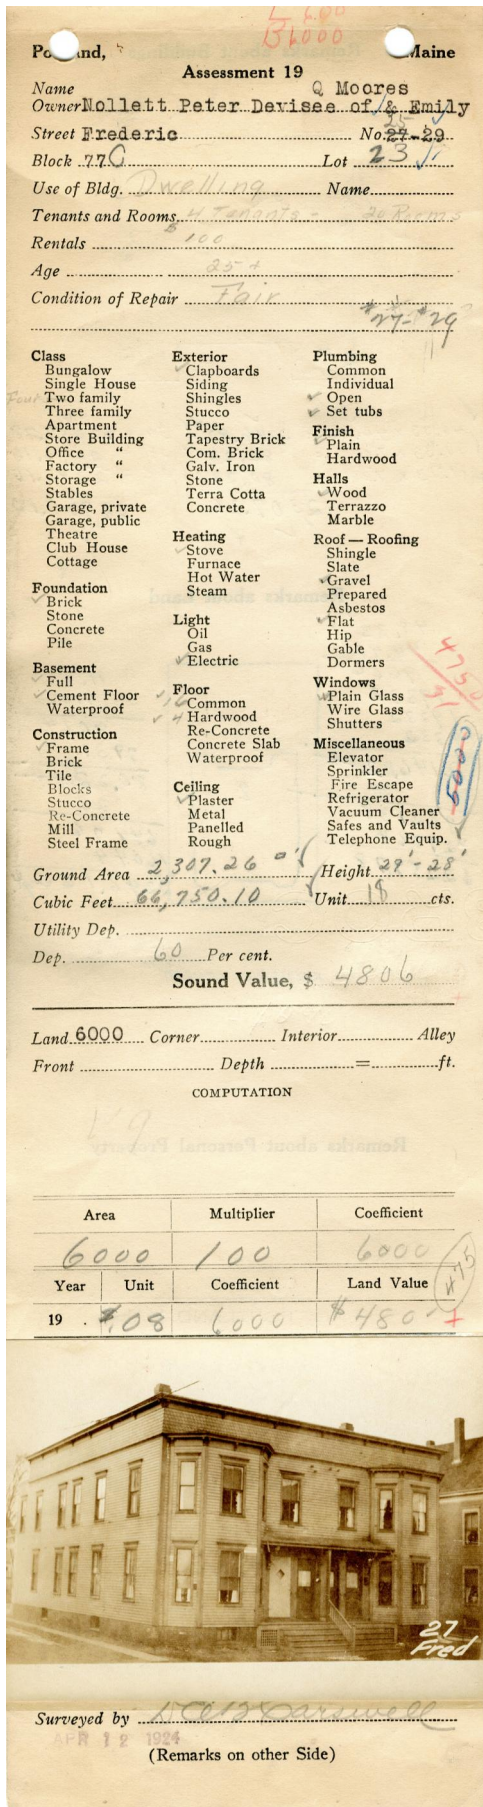 L 600
B 6000
Portland, Maine
Assessment 19
Name Q Moores
Owner Nollett Peter Devisee of & Emily
25
Street Frederic No. 27-29
Block 77C Lot 23
Use of Bldg. Dwelling Name
Tenants and Rooms 4 Tenants - 20 Rooms
Rentals $100
Age 25+
Condition of Repair Fair
#27-#29
Class
Bungalow
Single House
Four Two family
Three family
Apartment
Store Building
Office "
Factory "
Storage "
Stables
Garage, private
Garage, public
Theatre
Club House
Cottage
Foundation
Brick
Stone
Concrete
Pile
Basement
Full
Cement Floor
Waterproof
Construction
Frame
Brick
Tile
Blocks
Stucco
Re-Concrete
Mill
Steel Frame
Exterior
Clapboards
Siding
Shingles
Stucco
Paper
Tapestry Brick
Com. Brick
Galv. Iron
Stone
Terra Cotta
Concrete
Heating
Stove
Furnace
Hot Water
Steam
Light
Oil
Gas
Electric
Floor
16 Common
4 Hardwood
Re-Concrete
Concrete Slab
Waterproof
Ceiling
Plaster
Metal
Panelled
Rough
Plumbing
Common
Individual
Open
Set tubs
Finish
Plain
Hardwood
Halls
Wood
Terrazzo
Marble
Roof — Roofing
Shingle
Slate
Gravel
Prepared
Asbestos
Flat
Hip
Gable
Dormers
Windows
Plain Glass
Wire Glass
Shutters
Miscellaneous
Elevator
Sprinkler
Fire Escape
Refrigerator
Vacuum Cleaner
Safes and Vaults
Telephone Equip.
4750
51
6000
Ground Area 2,307.26 Height 29'-28'
Cubic Feet 66,750.10 Unit 18 cts.
Utility Dep.
Dep. 60 Per cent.
Sound Value, $ 4806
Land 6000 Corner Interior Alley
Front Depth = ft.
COMPUTATION
Area Multiplier Coefficient
6000 100 6000
Year Unit Coefficient Land Value
475
19 . $.08 6000 $480
27
Fred
Surveyed by
APR 12 1924
(Remarks on other Side)